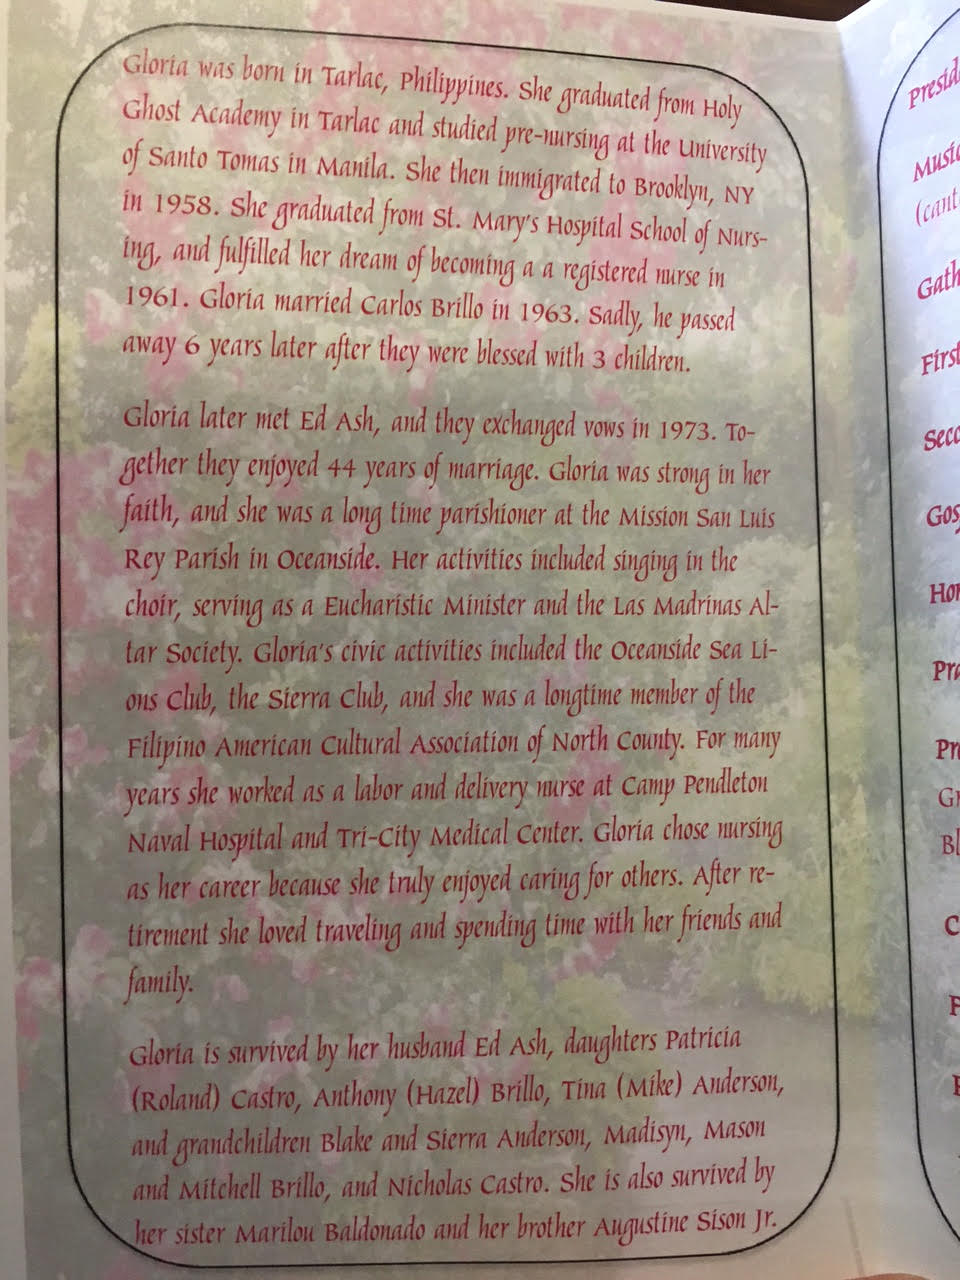 Gloria was born in Tarlac, Philippines. She graduated from Holy
Ghost Academy in Tarlac and studied pre-nursing at the University
of Santo Tomas in Manila. She then immigrated to Brooklyn, NY
in 1958. She graduated from St. Mary's Hospital School of Nurs-
ing, and fulfilled her dream of becoming a a registered nurse in
1961. Gloria married Carlos Brillo in 1963. Sadly, he passed
away 6 years later after they were blessed with 3 children.
Gloria later met Ed Ash, and they exchanged vows in 1973. To-
gether they enjoyed 44 years of marriage. Gloria was strong in her
faith, and she was a long time parishioner at the Mission San Luis
Rey Parish in Oceanside. Her activities included singing in the
choir, serving as a Eucharistic Minister and the Las Madrinas Al-
tar Society. Gloria's civic activities included the Oceanside Sea Li-
ons Club, the Sierra Club, and she was a longtime member of the
Filipino American Cultural Association of North County. For many
years she worked as a labor and delivery nurse at Camp Pendleton
Naval Hospital and Tri-City Medical Center. Gloria chose nursing
as her career because she truly enjoyed caring for others. After re-
tirement she loved traveling and spending time with her friends and
family.
Gloria is survived by her husband Ed Ash, daughters Patricia
(Roland) Castro, Anthony (Hazel) Brillo, Tina (Mike) Anderson,
and grandchildren Blake and Sierra Anderson, Madisyn, Mason
and Mitchell Brillo, and Nicholas Castro. She is also survived by
her sister Marilou Baldonado and her brother Augustine Sison Jr.
Presid
Music
(cant
Gath
First
Seco
Gos
Hom
Pra
Pr
Gr
Bl
C